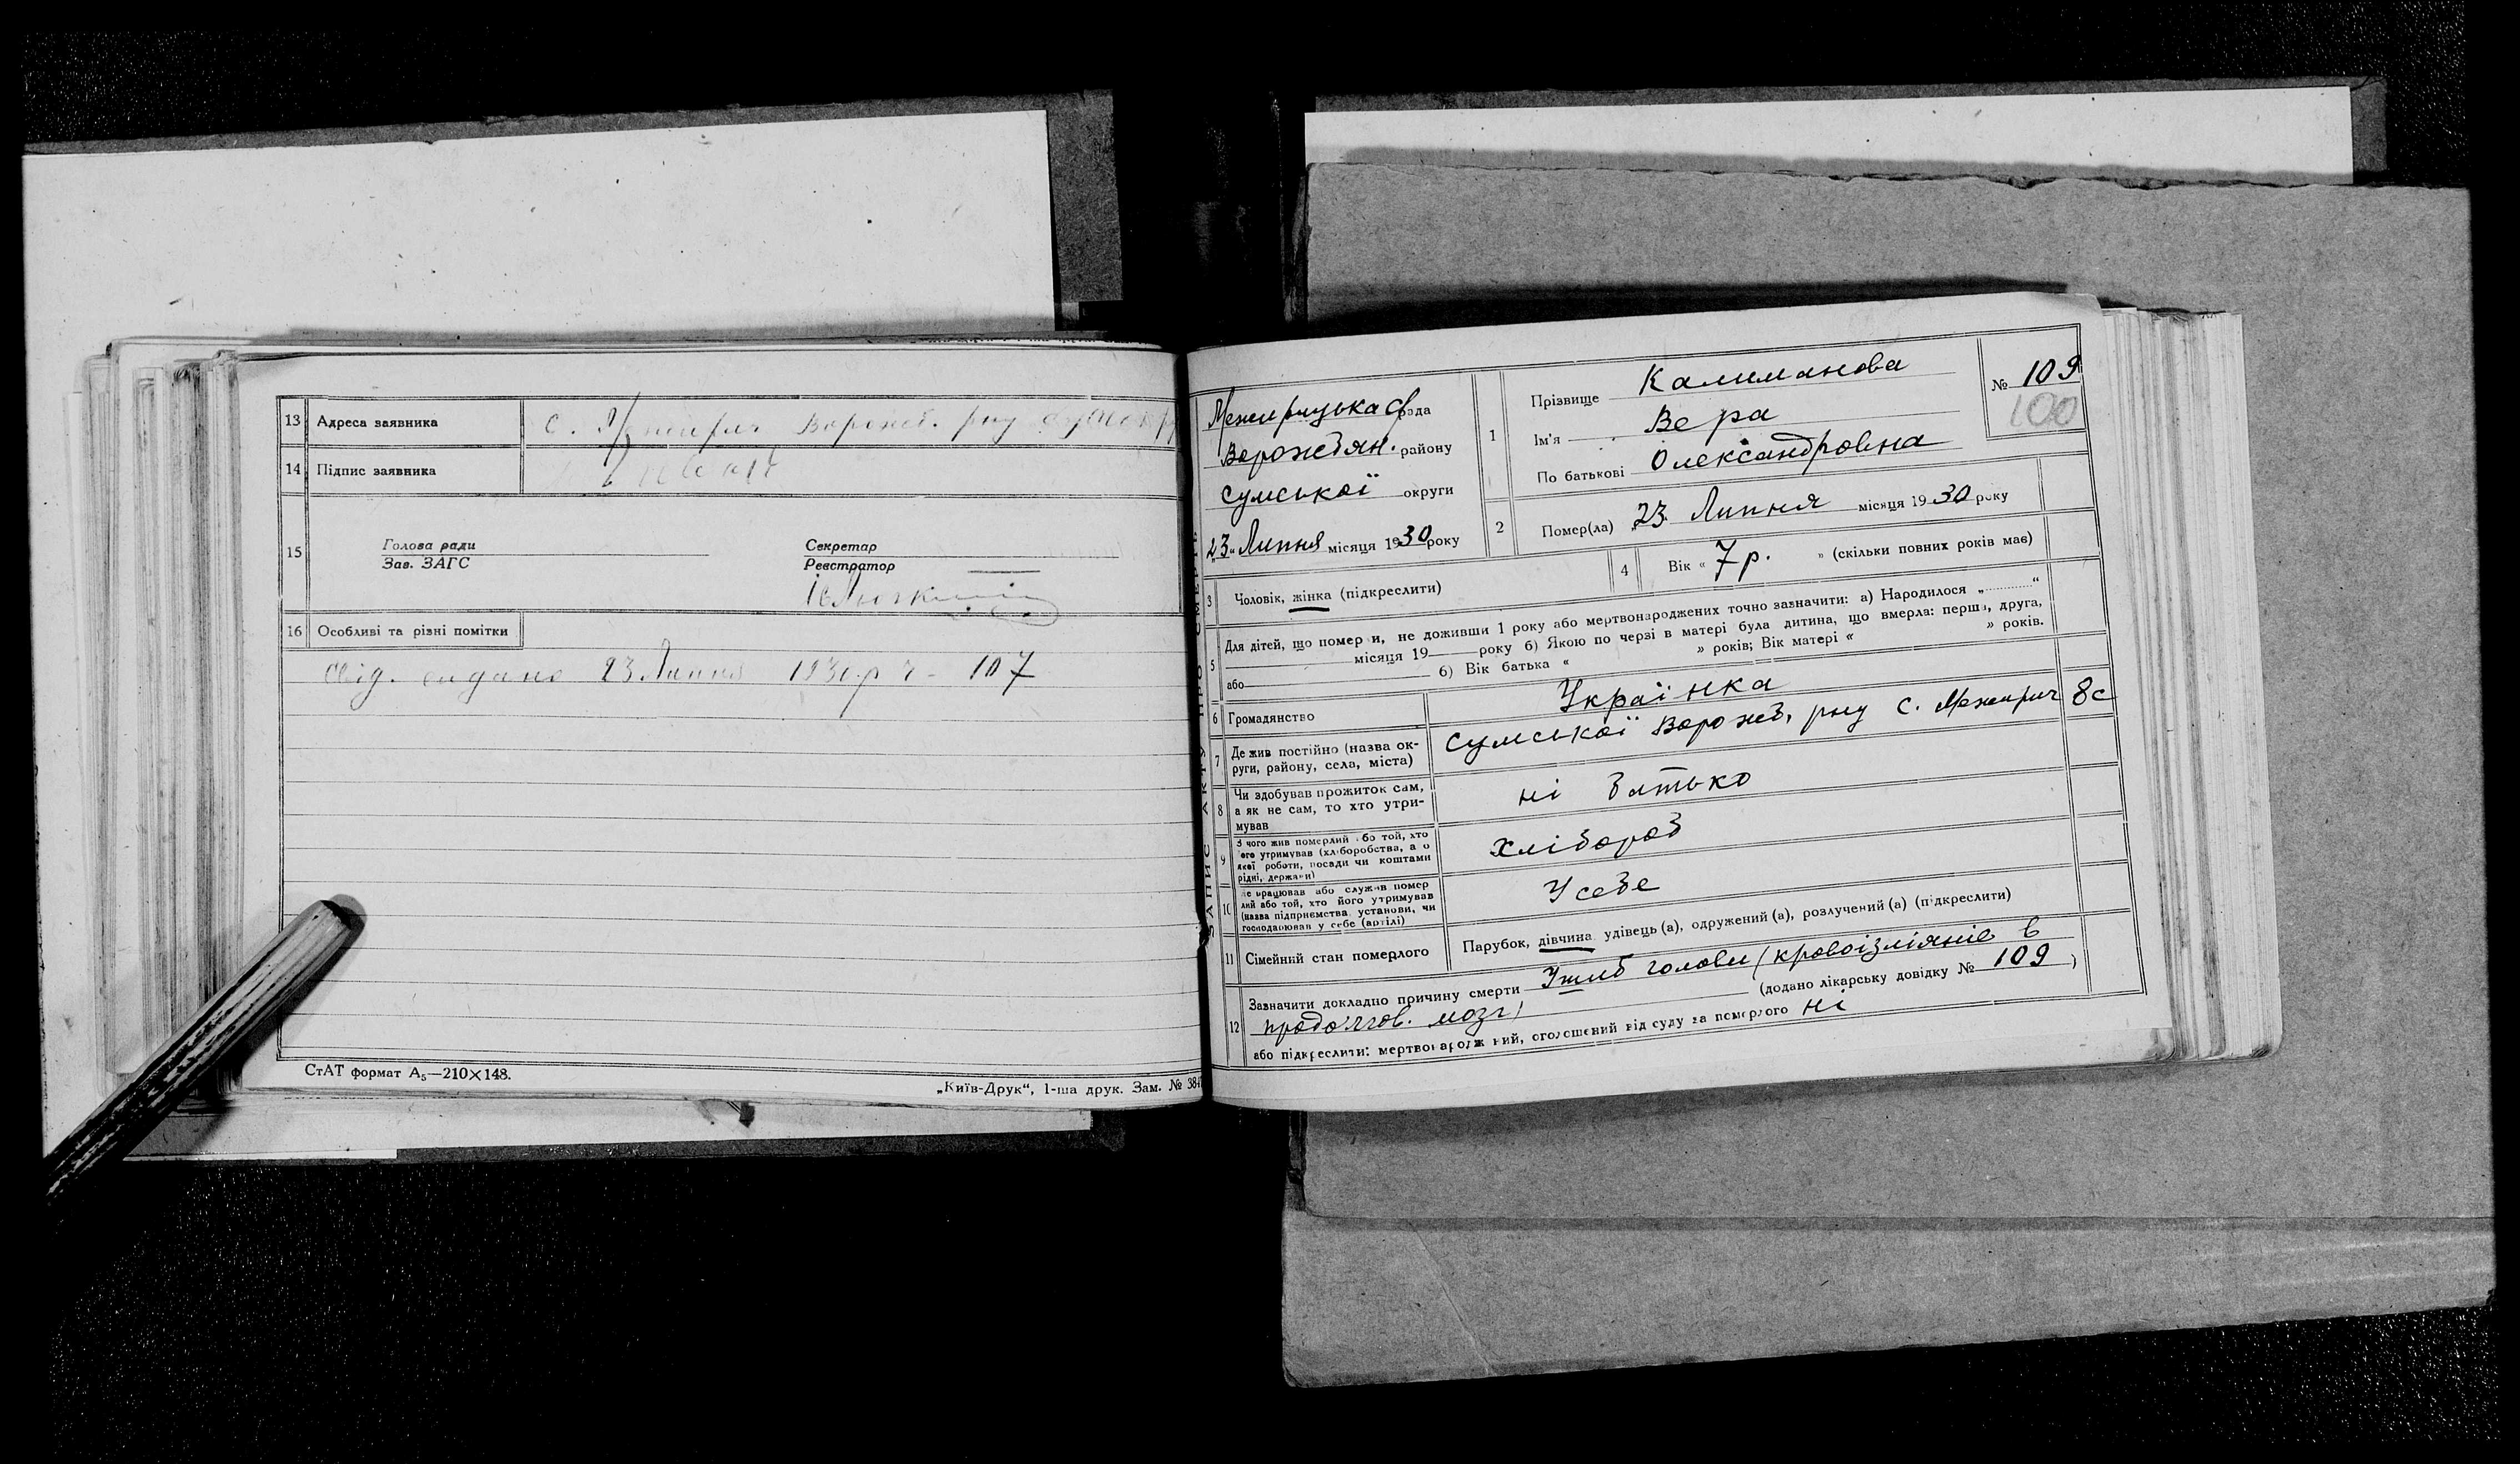 13 Адреса заявника с. Межирич Ворожб. рну Сумськ
14 Підпис заявника
15 Голова ради Секретар
Зав. ЗАГС Реєстратор
16 Особливі та різні помітки
Свід. видано 23 Липня 1930 р ч - 107
СтАТ формат А5—210×148.
„Київ-Друк“, 1-ша друк. Зам. № 384
ЗАПИС АКТУ ПРО СМЕРТЬ
Межирицька с/рада
Ворожбян. району
Сумської округи
23 „ Липня місяця 1930 року
1 Прізвище Калиманова
Ім'я Вера
По батькові Олександровна
№ 109
100
2 Помер(ла) 23 Липня місяця 1930 року
3 Чоловік, жінка (підкреслити)
4 Вік « 7 р. » (скільки повних років має)
5 Для дітей, що померли, не доживши 1 року або мертвонароджених точно зазначити: а) Народилося „ “
місяця 19 року б) Якою по черзі в матері була дитина, що вмерла: перша, друга,
або б) Вік батька « » років; Вік матері « » років.
6 Громадянство Українка
7 Де жив постійно (назва округи, району, села, міста) Сумської Ворожб, рну с. Межирич 8с
8 Чи здобував прожиток сам,
а як не сам, то хто утри-
мував ні батько
9 З чого жив померлий або той, хто
його утримував (хліборобства, а о
якої роботи, посади чи коштами
рідні, держави) хлібороб
10 Де працював або служив помер
лий або той, хто його утримував
(назва підприємства установи, чи
господарював у себе (артілі) У себе
11 Сімейний стан померлого Парубок, дівчина удівець (а), одружений (а), розлучений (а) (підкреслити)
12 Зазначити докладно причину смерти Ушиб голови (кровоізліяніе в
продолгов. мозг) (додано лікарську довідку № 109 )
або підкреслити: мертвонароджений, оголошений від суду за померлого ні